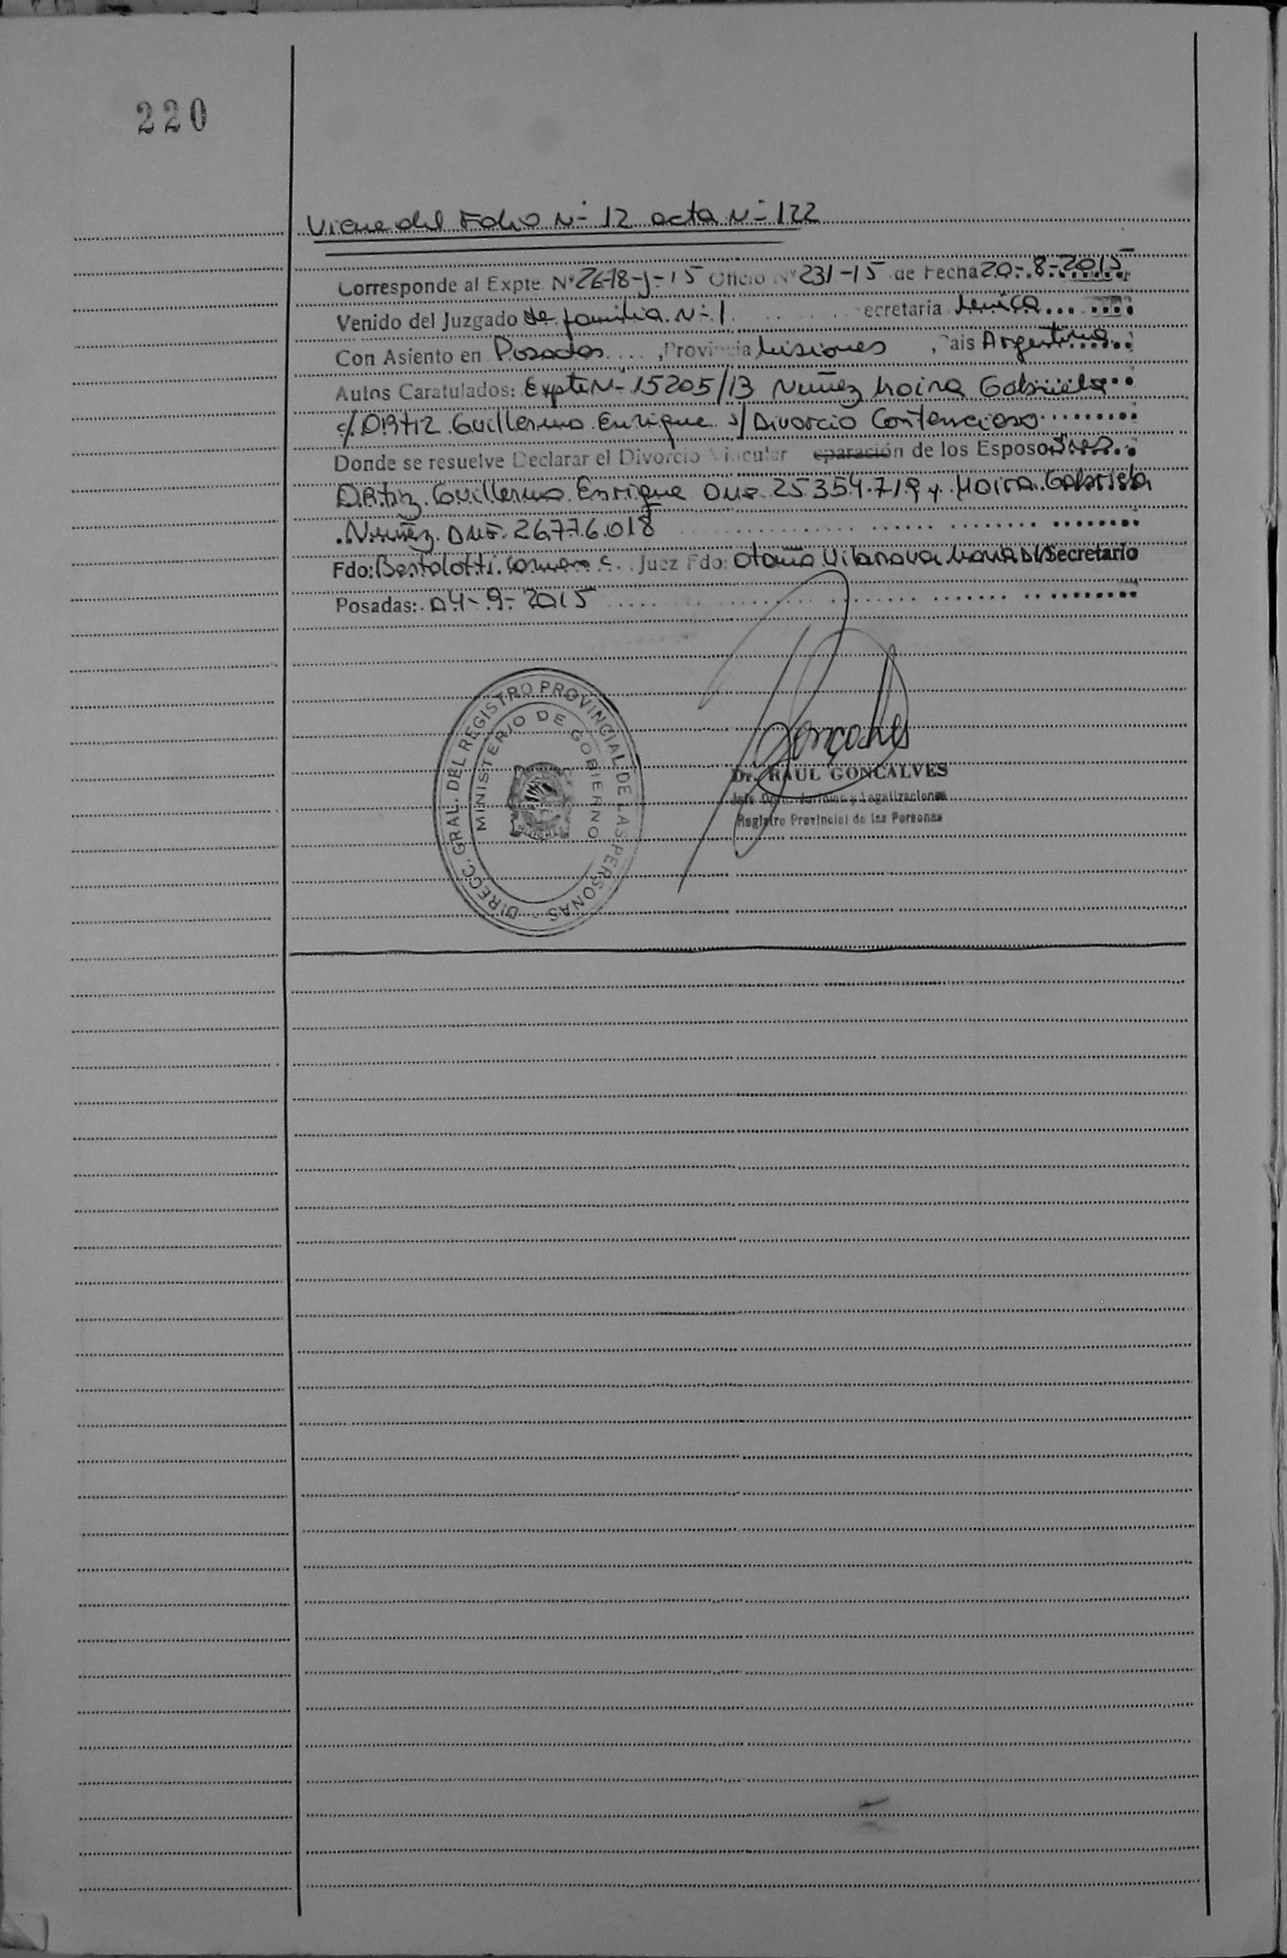 220
Viene del Folio Nº 12 acta Nº 122
Corresponde al Expte. Nº 2678-J-15 Oficio Nº 231-15 de Fecha 20-8-2015
Venido del Juzgado de familia Nº 1 ecretaria Unica
Con Asiento en Posadas, Provincia Misiones, Pais Argentina
Autos Caratulados: Expte Nº 15205/13 Nuñez Moira Gabriela
c/ ORtiz Guillermo Enrique s/ Divorcio Contencioso
Donde se resuelve Declarar el Divorcio Vincular eparación de los Esposos Sres.
ORtiz Guillermo Enrique DNI 25354.719 y Moira Gabriela
Nuñez DNI. 26.776.018
Fdo: Bertolotti Carmen C. Juez Fdo: Otaño Vilanova Maria Secretario
Posadas: 04-9-2015
DIRECC. GRAL. DEL REGISTRO PROVINCIAL DE LAS PERSONAS
MINISTERIO DE GOBIERNO
Goncalves
Dr. RAUL GONCALVES
Jefe Dpto. Jurídico y Legalizaciones
Registro Provincial de las Personas